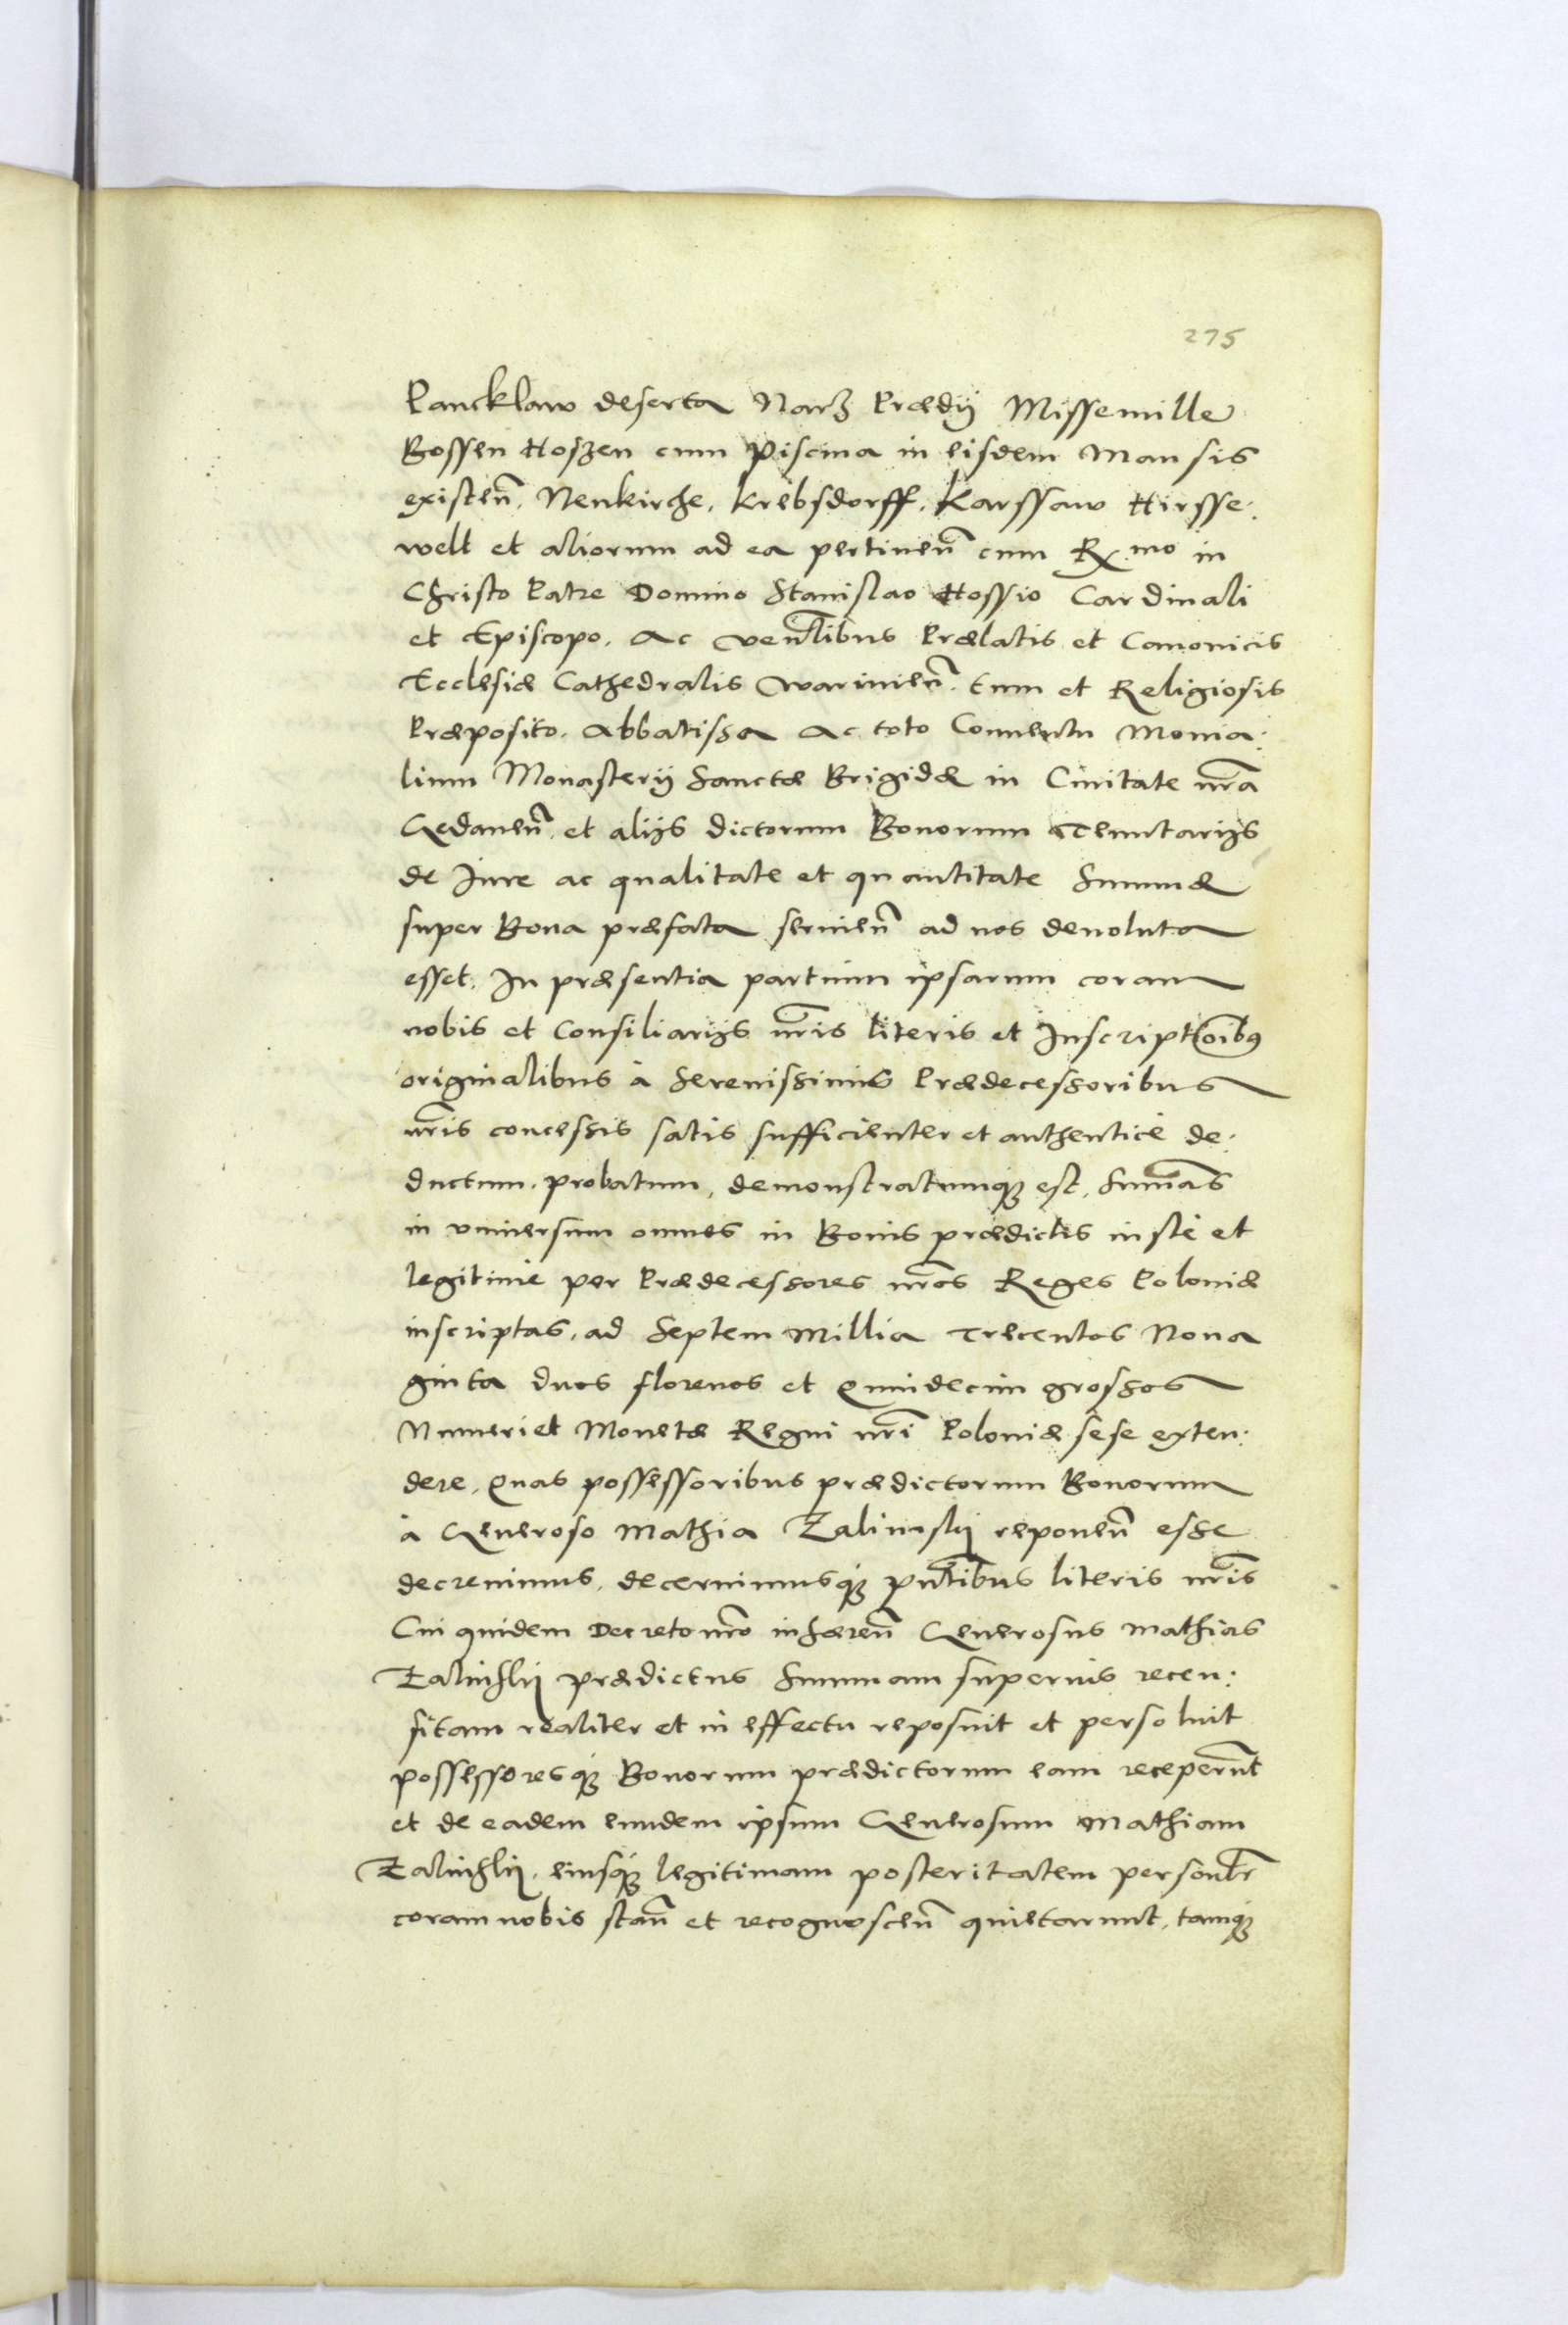 275
Pancklaw deserta Narz Prædij Missemille
Bossen Hoszen cum piscina in eisdem Mansis
existeñ. Neukirche, Krebsdorff, Karssaw Hirsse:
welt et aliorum ad ea pertineñ cum Rx.mo in
Christo Patre Domino Stanislao Hossio Cardinali
et Episcopo. Ac Veñlibus Prælatis et Canonicis
Ecclesiæ Cathedralis Warmieñ. tum et Religiosis
Præposito. Abbatissa Ac toto Conuentu Monia:
lium Monasterij Sanctæ Brigidæ in Ciuitate nr̃a
Gedaneñ. et alijs dictorum Bonorum Tenutarijs
de Iure ac qualitate et quantitate Summæ
super Bona præfata seruieñ ad nos deuoluta
esset. In præsentia partium ipsarum coram
nobis et Consiliarijs nr̃is literis et Inscriptõibus
originalibus à Serenissimis Prædecessoribus
nr̃is concessis satis sufficienter et authenticè de:
ductum. probatum, demonstratumq; est. Summ̃as
in vniuersum omnes in Bonis prædictis iustè et
legitimè per Prædecessores nr̃os Reges Poloniæ
inscriptas, ad Septem Millia Trecentos Nona
ginta duos florenos et Quindecim grossos
Numeri et Monetæ Regni nr̃i Poloniæ sese exten:
dere. Quas possessoribus prædictorum Bonorum
à Generoso Mathia Zalinskij reponeñ esse
decreuimus, decernimusq; pñtibus literis nr̃is
Cui quidem Decreto nr̃o inhæreñ Generosus Mathias
Zalinskij prædictus Summam superius recen:
sitam realiter et in effectu reposuit et persoluit
possessoresq; Bonorum prædictorum eam receper̃unt
et de eadem eundem ipsum Generosum Mathiam
Zalinskij. eiusq; legitimam posteritatem persoñlr
coram nobis stañ et recognosceñ quietarunt, tamq;